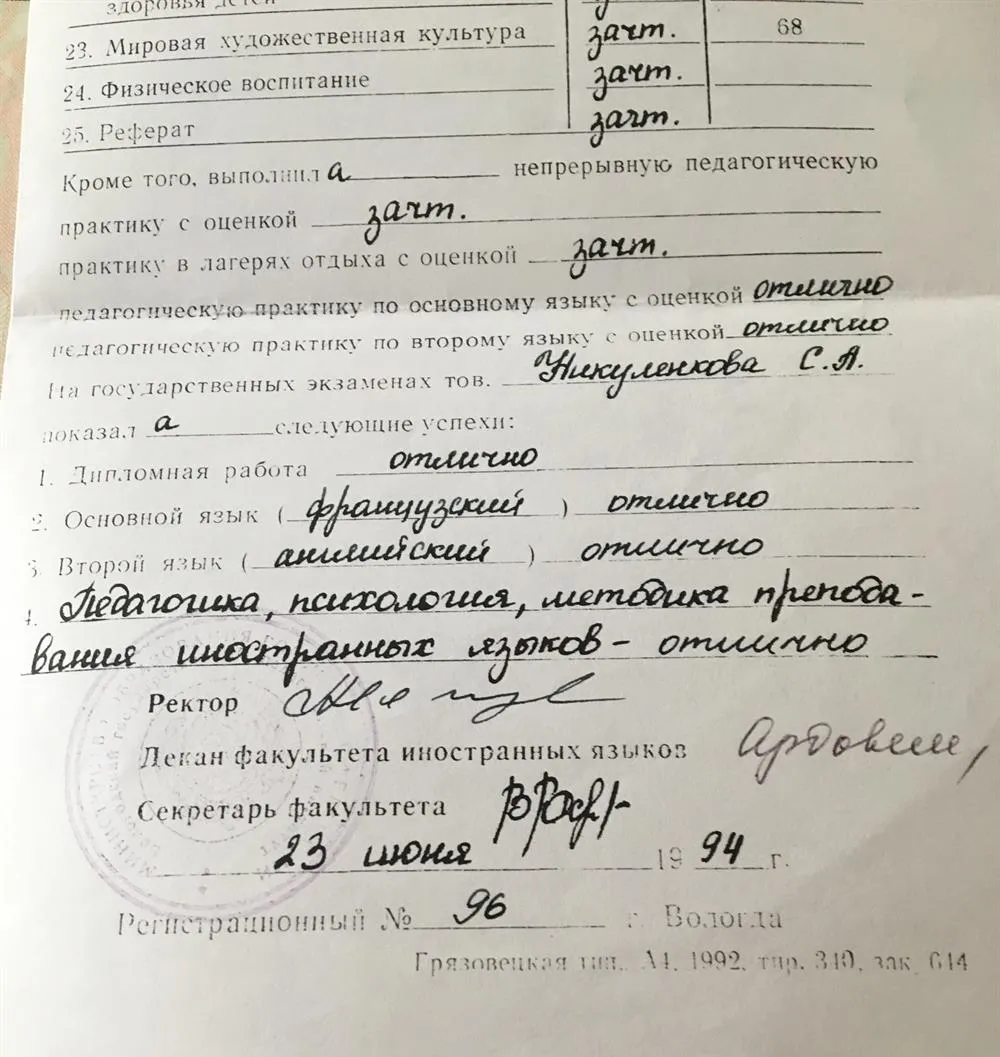 здоровья детей
23. Мировая художественная культура зачт. 68
24. Физическое воспитание зачт.
25. Реферат зачт.
Кроме того, выполнил а непрерывную педагогическую
практику с оценкой зачт.
практику в лагерях отдыха с оценкой зачт.
педагогическую практику по основному языку с оценкой отлично
педагогическую практику по второму языку с оценкой отлично
На государственных экзаменах тов. Никуленкова С.А.
показал а следующие успехи:
1. Дипломная работа отлично
2. Основной язык ( французский ) отлично
3. Второй язык ( английский ) отлично
4. Педагогика, психология, методика препода-
вания иностранных языков - отлично
Ректор
Декан факультета иностранных языков
Секретарь факультета
23 июня 1994 г.
Регистрационный № 96 г. Вологда
Грязовецкая тип., А4, 1992, тир. 340, зак. 644